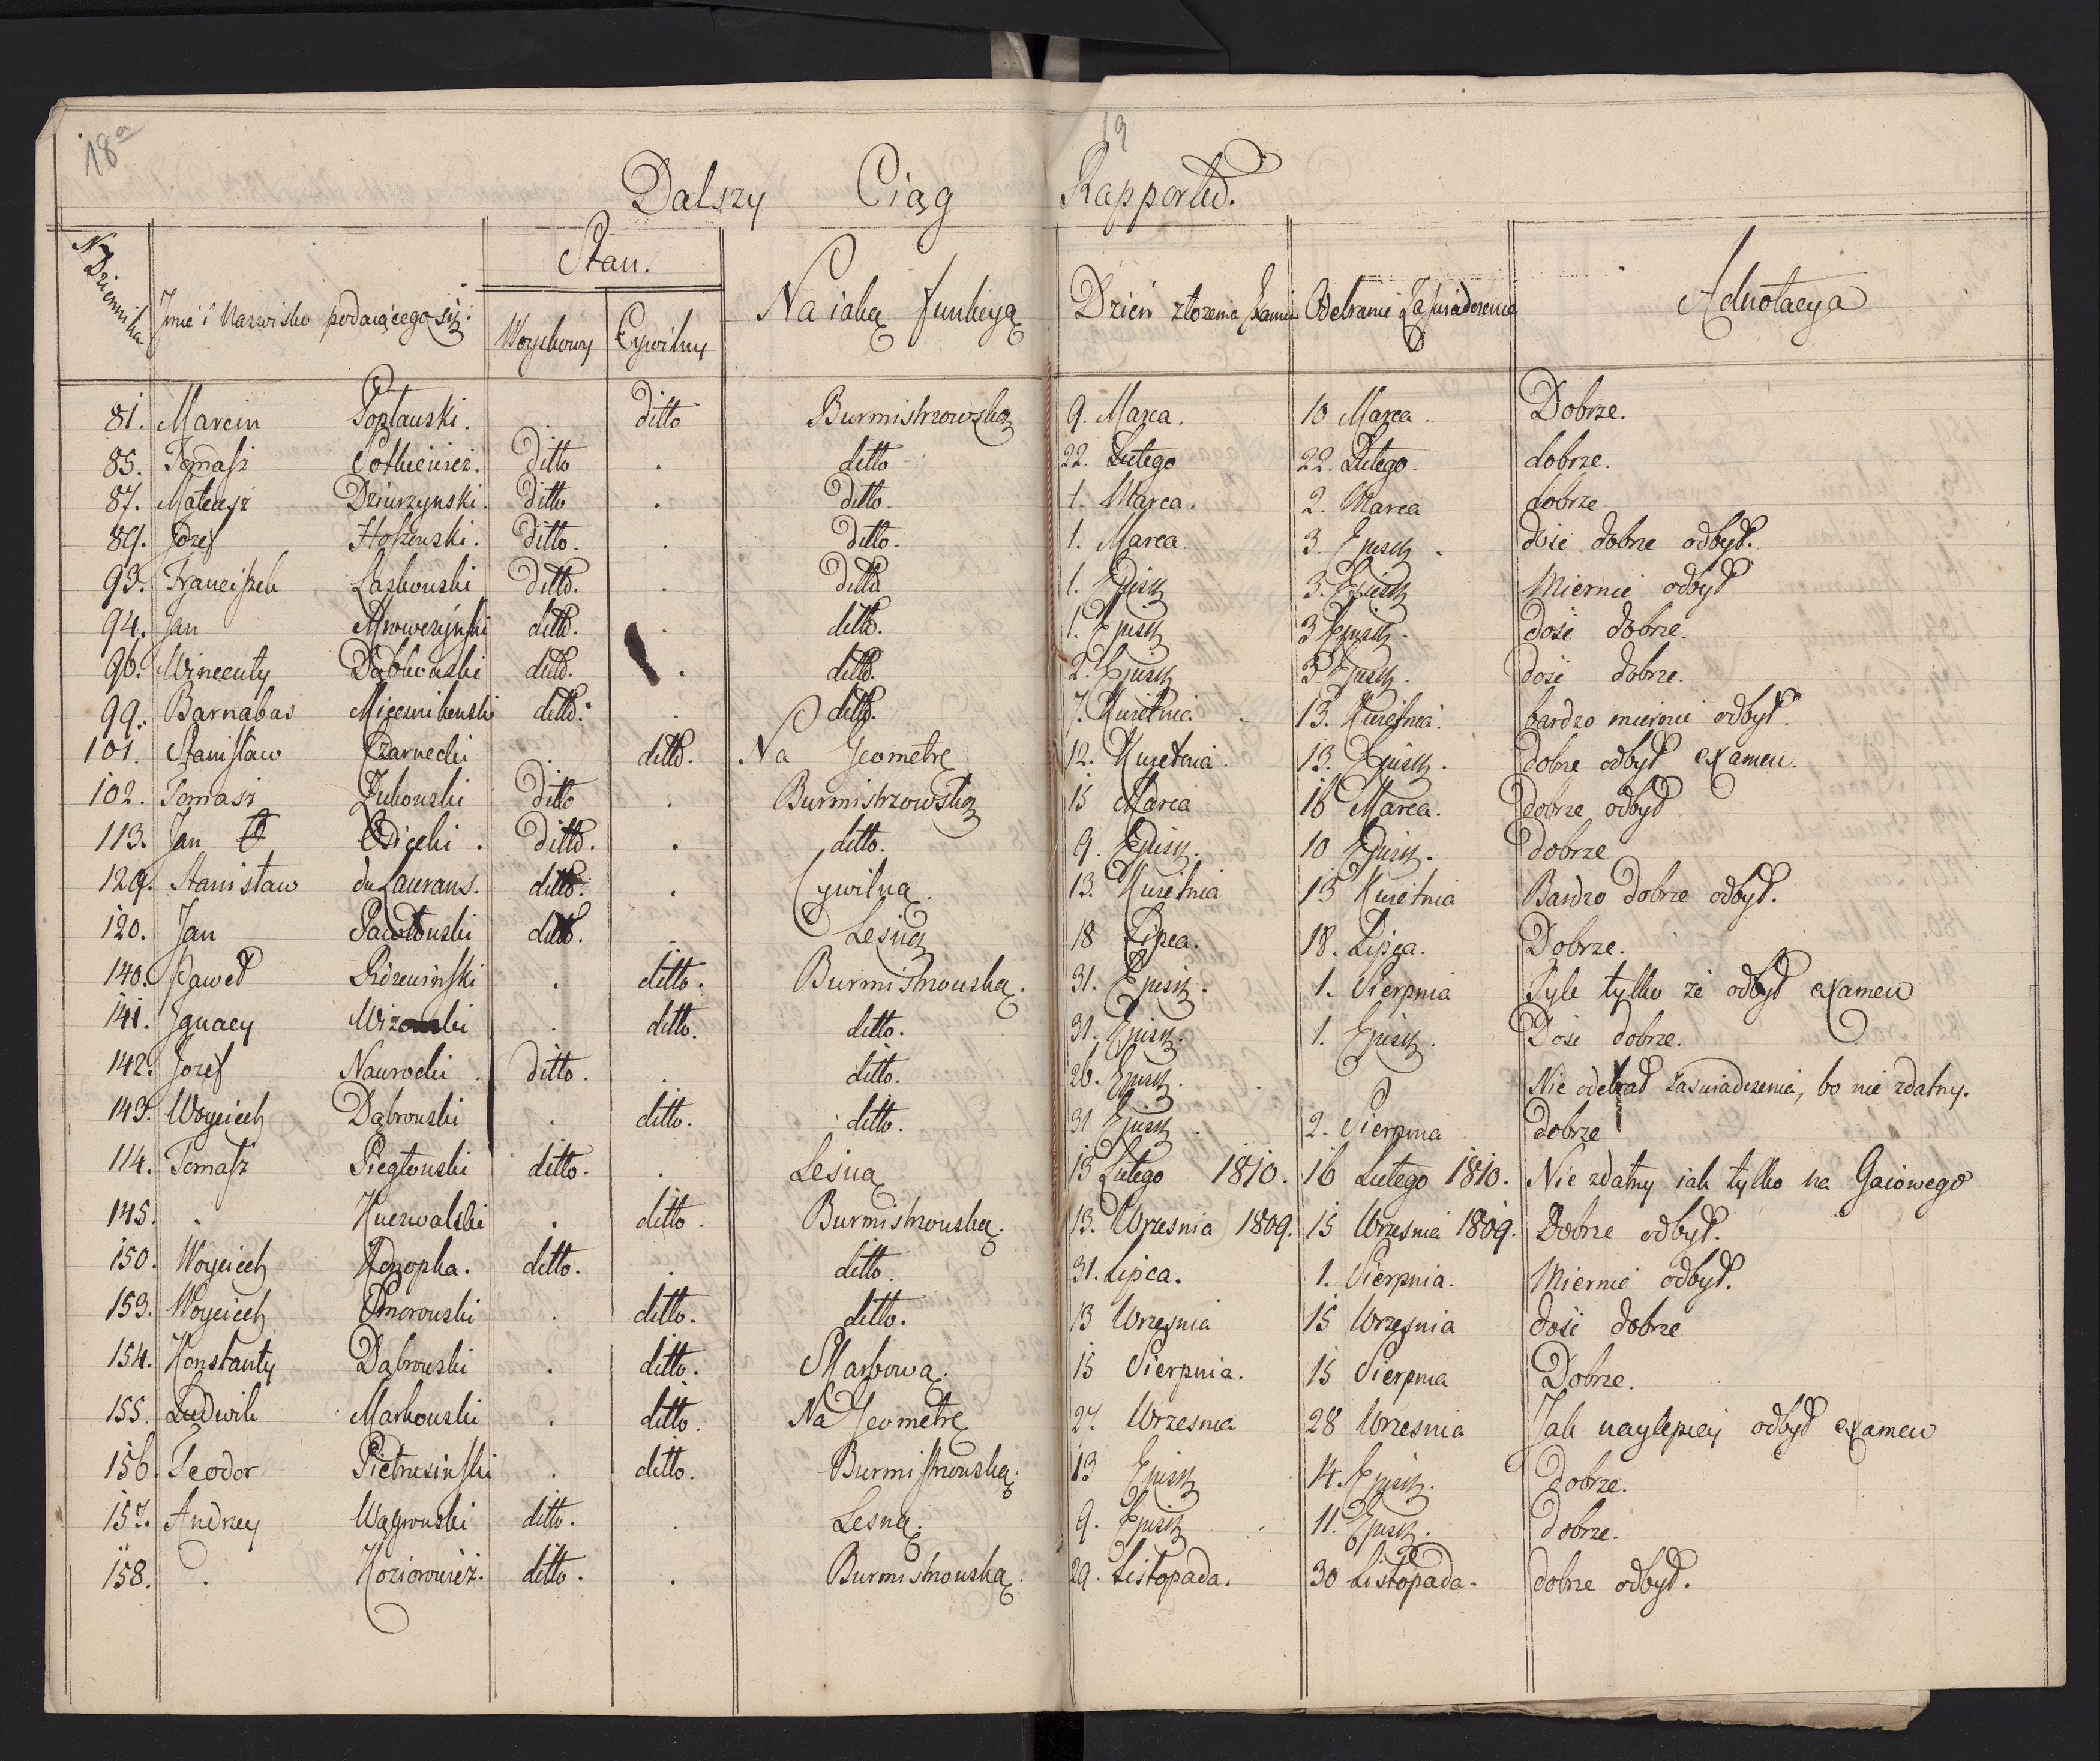 18a
19
Dalszy Ciąg Rapportu.
Nr Dziennika Jmie i Nazwisko podaiącego się. Stan. Na iaką funkcyą Dzień złożenia Exam Odebranie Zaświadczenia Adnotacya
Woyskowy Cywilny
81. Marcin Popławski. . ditto Burmistrzowską 9. Marca. 10 Marca. Dobrze.
85. Tomasz ditto . ditto 22. Lutego 22. Lutego. dobrze.
87. Mateusz Dziurzynski. ditto . ditto. 1. Marca. 2. Marca dobrze.
89. Jozef ditto. . ditto. 1. Marca. 3. Ejusd. dosć dobrze odbył.
93. Franciszek Laskowski ditto. . ditto 1. Ejusd 3. Ejusd Miernie odbył
94. Jan Mrowczyński ditto. . ditto. 1. Ejusd 3 Ejusd. dosć dobrze.
96. Wincenty Dąbkowski ditto. . ditto. 2. Ejusd 3. Ejusd. dosć dobrze.
99. Barnabas Mięcsnikowski ditto. . ditto. 7. Kwietnia 13. Kwietnia. bardzo miernie odbył.
101. Stanisław Czarnecki . ditto. Na Jeometrę 12. Kwietnia. 13. Ejusd. dobrze odbył examen.
102. Tomasz Żukowski ditto . Burmistrzowską 15 Marca 16 Marca. dobrze odbył
113. Jan ditto. . ditto. 9. Ejusd. 10 Ejusd. dobrze
129. Stanisław du Laurans. ditto. . Cywilną. 13. Kwietnia 15 Kwietnia Bardzo dobrze odbył.
120. Jan Pawłowski ditto. . Leśną 18 Lipca. 18. Lipca. Dobrze.
140. Paweł . ditto. Burmistrzowską. 31. Ejusd. 1. Sierpnia Tyle tylko że odbył examen
141. Jgnacy . ditto. ditto. 31. Ejusd. 1. Ejusd. Dosć dobrze.
142. Jozef Nawrocki. ditto. . ditto. 26. Ejusd. . Nie odebrał zaświadczenia, bo nie zdatny.
143. Woyciech Dąbrowski . ditto. ditto. 31 Ejusd. 2. Sierpnia dobrze
114. Tomasz Piegłowski ditto. . Leśną 13 Lutego 1810. 16 Lutego 1810. Nie zdatny iak tylko na Gaiowego
145. . Kuczwalski . ditto. Burmistrzowską. 13. Wrzesnia 1809. 15 Wrzesnia 1809. Dobrze odbył.
150. Woyciech Konopka. ditto. . ditto. 31. Lipca. 1. Sierpnia. Miernie odbył.
153. Woyciech . ditto. ditto. 13 Wrzesnia 15 Wrzesnia dosć dobrze
154. Konstanty Dąbrowski . ditto. Skarbową. 15 Sierpnia. 15 Sierpnia Dobrze.
155. Ludwik Markowski . ditto. Na Jeometrę 27. Wrzesnia 28 Wrzesnia Jak naylepiey odbył examen
156. Teodor Pietrusiński . ditto. Burmistrzowską. 13 Ejusd 14. Ejusd. Dobrze.
157. Andrzey Wągrowski ditto. . Lesną. 9. Ejusd 11. Ejusd. dobrze.
158. . Koziorowicz. ditto. . Burmistrzowską. 29. Listopada. 30 Listopada. dobrze odbył.